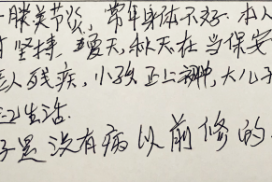 膑关节炎，常年身体不好.本人
坚持.夏天,秋天在当保安
人残疾,小孩正上初中,大儿子
生活.
子是没有病以前修的